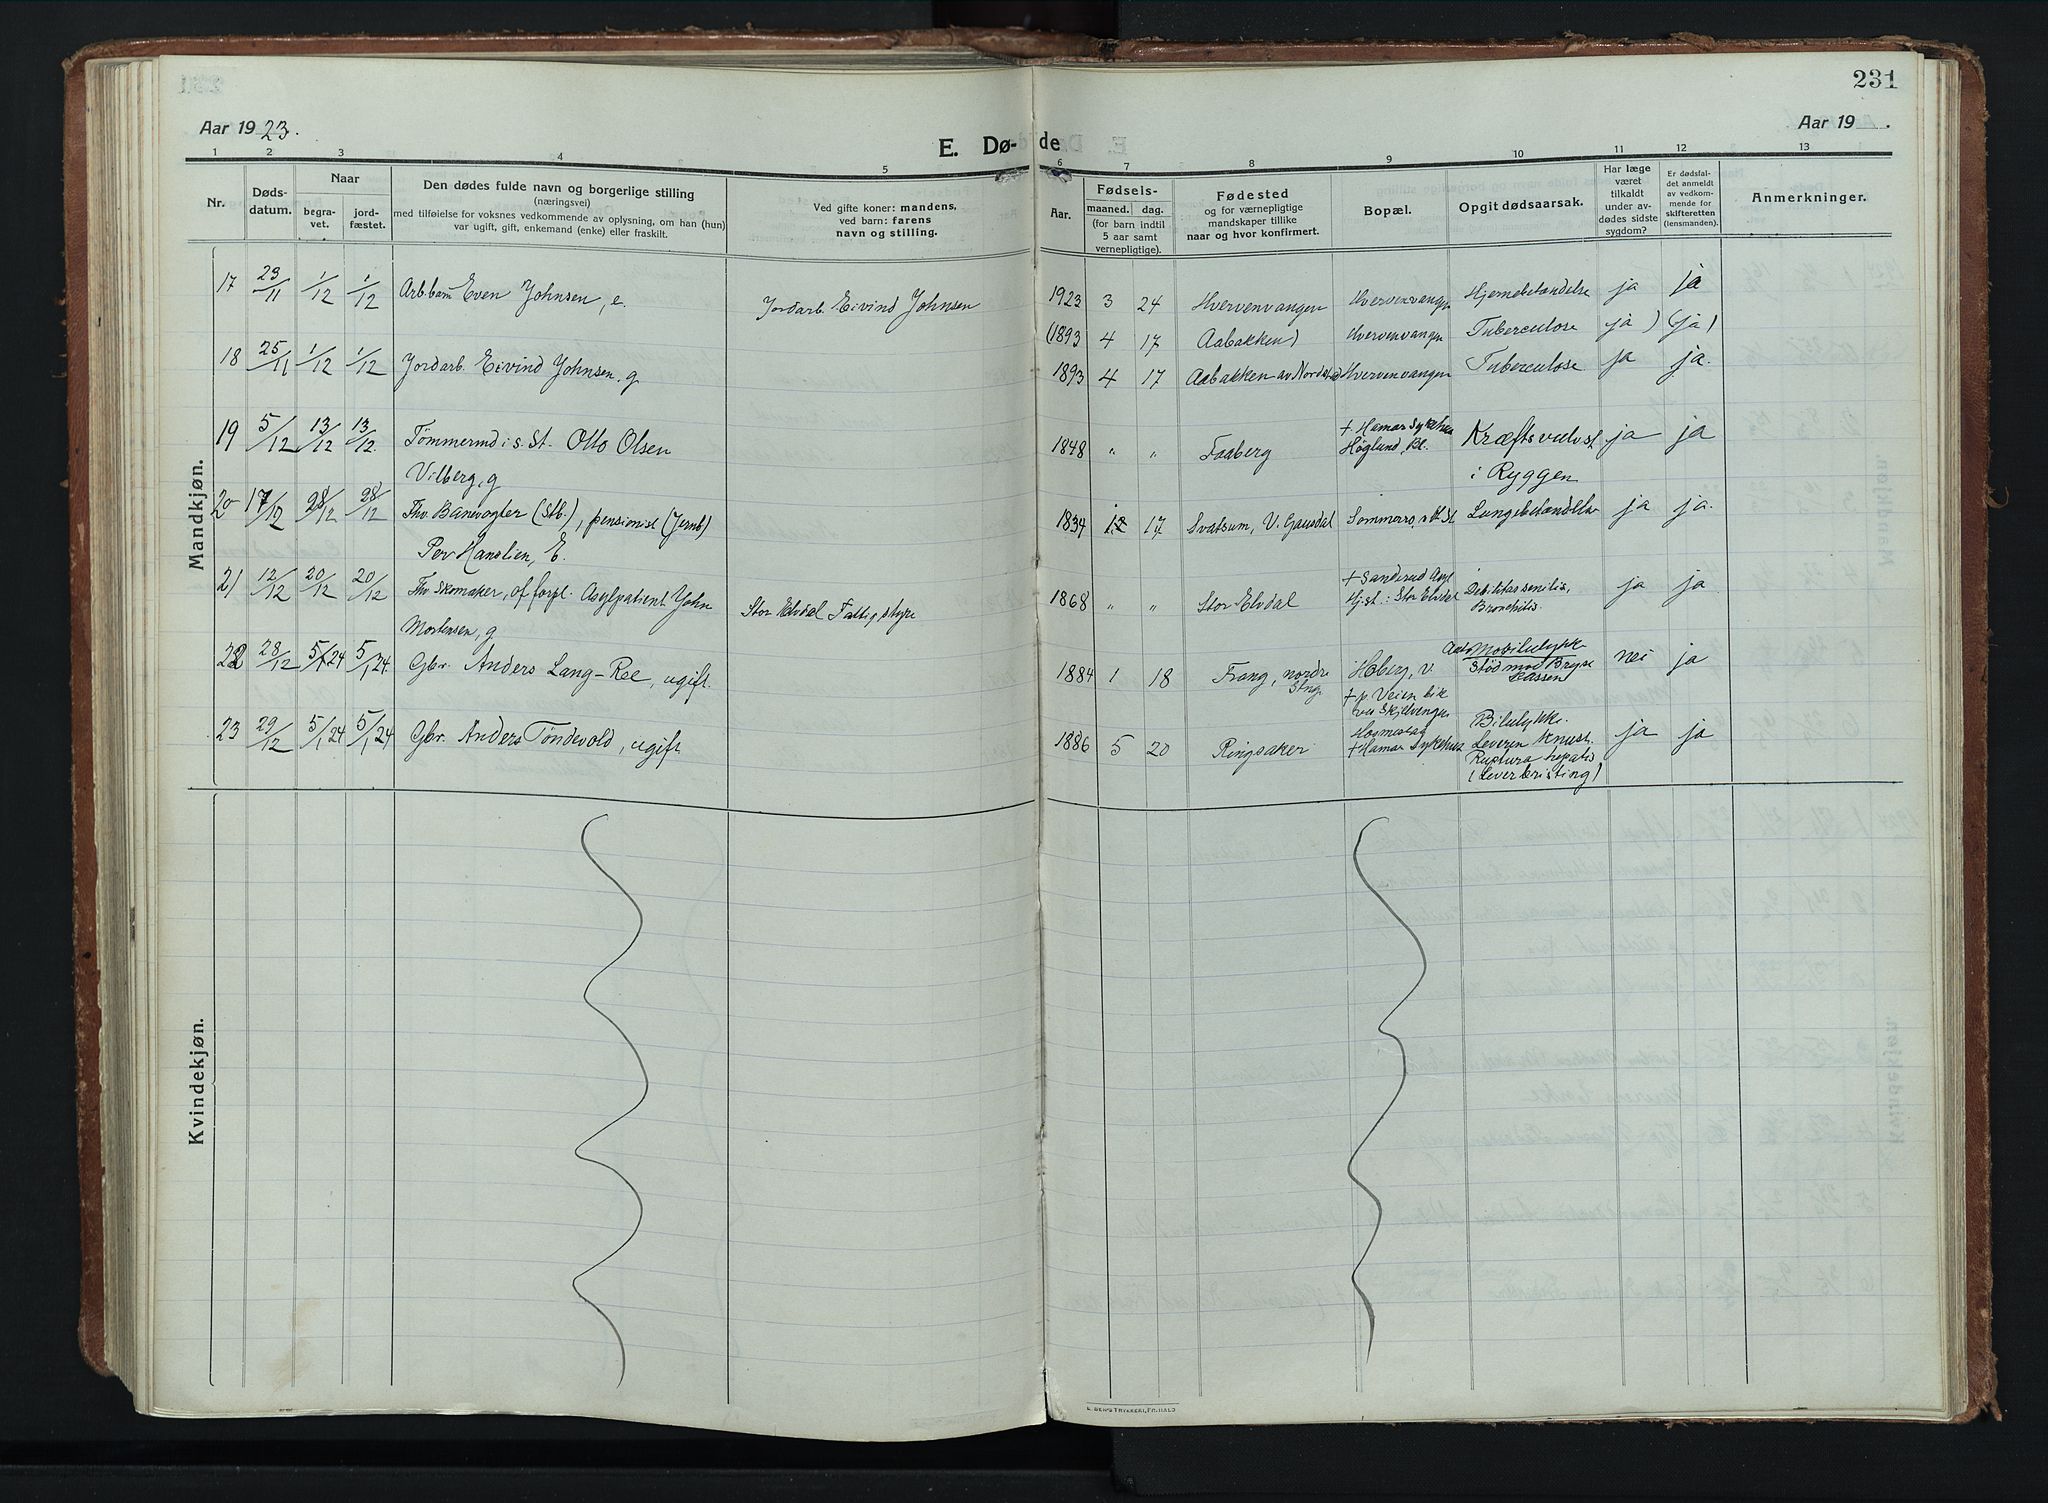 231
Aar 1923.
E. Dø-
de
Aar 19 .
1 2 3 4 5 6 7 8 9 10 11 12 13
Nr.
Døds-
datum.
Naar
begra-
vet.
jord-
fæstet.
Den dødes fulde navn og borgerlige stilling
(næringsvei)
med tilføielse for voksnes vedkommende av oplysning, om han (hun)
var ugift, gift, enkemand (enke) eller fraskilt.
Ved gifte koner: mandens,
ved barn: farens
navn og stilling.
Aar.
Fødsels-
maaned. dag.
(for barn indtil
5 aar samt
vernepligtige).
Fødested
og for værnepligtige
mandskaper tillike
naar og hvor konfirmert.
Bopæl.
Opgit dødsaarsak.
Har læge
været
tilkaldt
under av-
dødes sidste
sygdom?
Er dødsfal-
det anmeldt
av vedkom-
mende for
skifteretten
(lensmanden).
Anmerkninger.
Mandkjøn.
17 23/11 1/12 1/12 Arb.barn Even Johnsen, e. Jordarb. Eivind Johnsen 1923 3 24 Hvervenvangen Hvervenvangen Hjernebetændelse ja ja
(1893 4 17 Aabakken) Hvervenvangen Tuberculose ja) (ja)
18 25/11 1/12 1/12 Jordarb. Eivind Johnsen, g 1893 4 17 Aabakken av Hvervenvangen Tuberculose ja ja.
19 5/12 13/12 13/12 Tømmermd i s. St. Otto Olsen 1848 " " Faaberg + Hamar Sykehus Kræftsvulst ja ja
Vilberg, g Høglund, Bl. i Ryggen
20 17/12 28/12 28/12 Fhv. Banevogter (Stb.), pensionist (Jernb) 1834 12 17 Svatsum, V. Gausdal Sommerro, Lungebetændelse ja ja.
Per Hanslien, E.
21 12/12 20/12 20/12 Fhv. Skomaker, off. forpl. Asylpatient John Stor Elvdal Fattigstyre 1868 " " Stor Elvdal + Sanderud Asyl Debilitas senilis, ja ja
Mortensen, g Hj.st.: Stor Elvdal Bronchitis.
22 28/12 5/1 24 5/1 24. Gbr. Anders Lang-Ree, ugift. 1884 1 18 Frang, nordre Hoberg, v Automobilulykke nei ja
Stng. + p. Veien Stød mod Bryst
kassen
23 29/12 5/1 24 5/1 24 Gbr. Anders Tøndevold, ugift 1886 5 20 Ringsaker + Hamar Sykehus Bilulykke. ja ja
Leveren Knust.
Ruptura hepatis
(Leverbristing)
Kvindekjøn.